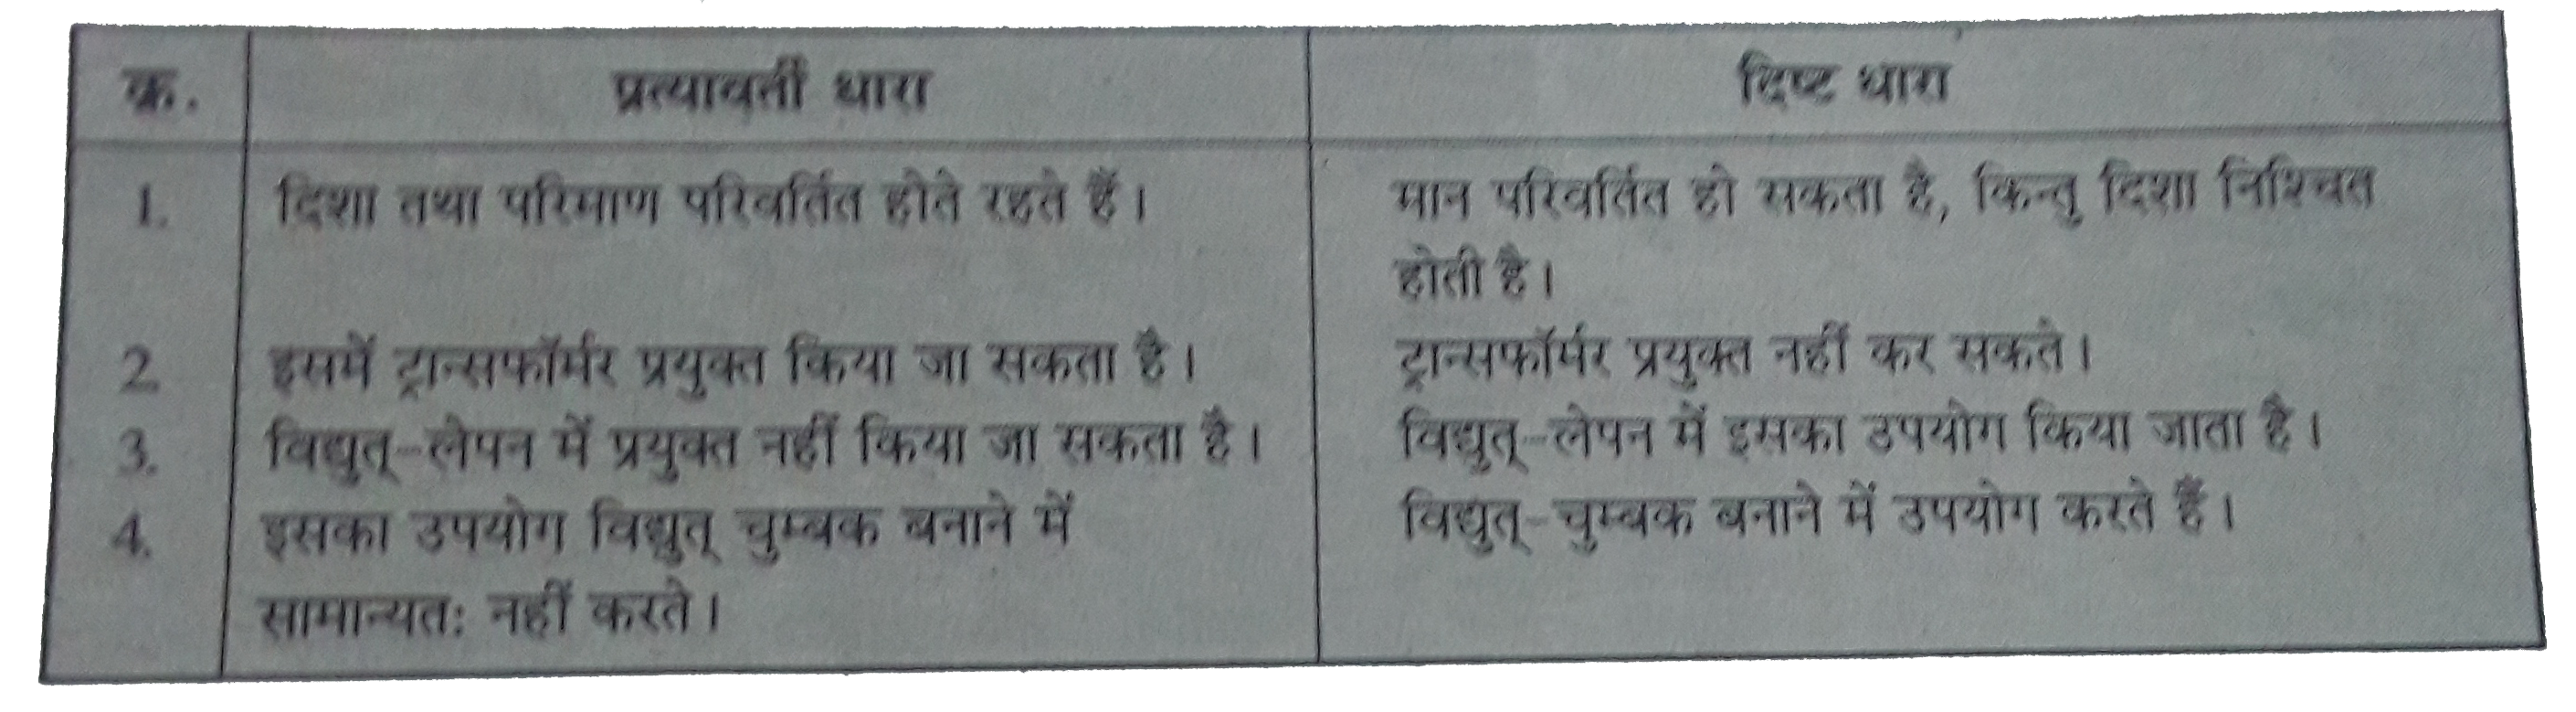 क्र. प्रत्यावर्ती धारा दिष्ट धारा
1. दिशा तथा परिमाण परिवर्तित होते रहते हैं। मान परिवर्तित हो सकता है, किन्तु दिशा निश्चित
होती है।
2. इसमें ट्रान्सफॉर्मर प्रयुक्त किया जा सकता है। ट्रान्सफॉर्मर प्रयुक्त नहीं कर सकते।
3. विद्युत्-लेपन में प्रयुक्त नहीं किया जा सकता है। विद्युत्-लेपन में इसका उपयोग किया जाता है।
4. इसका उपयोग विद्युत् चुम्बक बनाने में विद्युत्-चुम्बक बनाने में उपयोग करते हैं।
सामान्यत: नहीं करते।